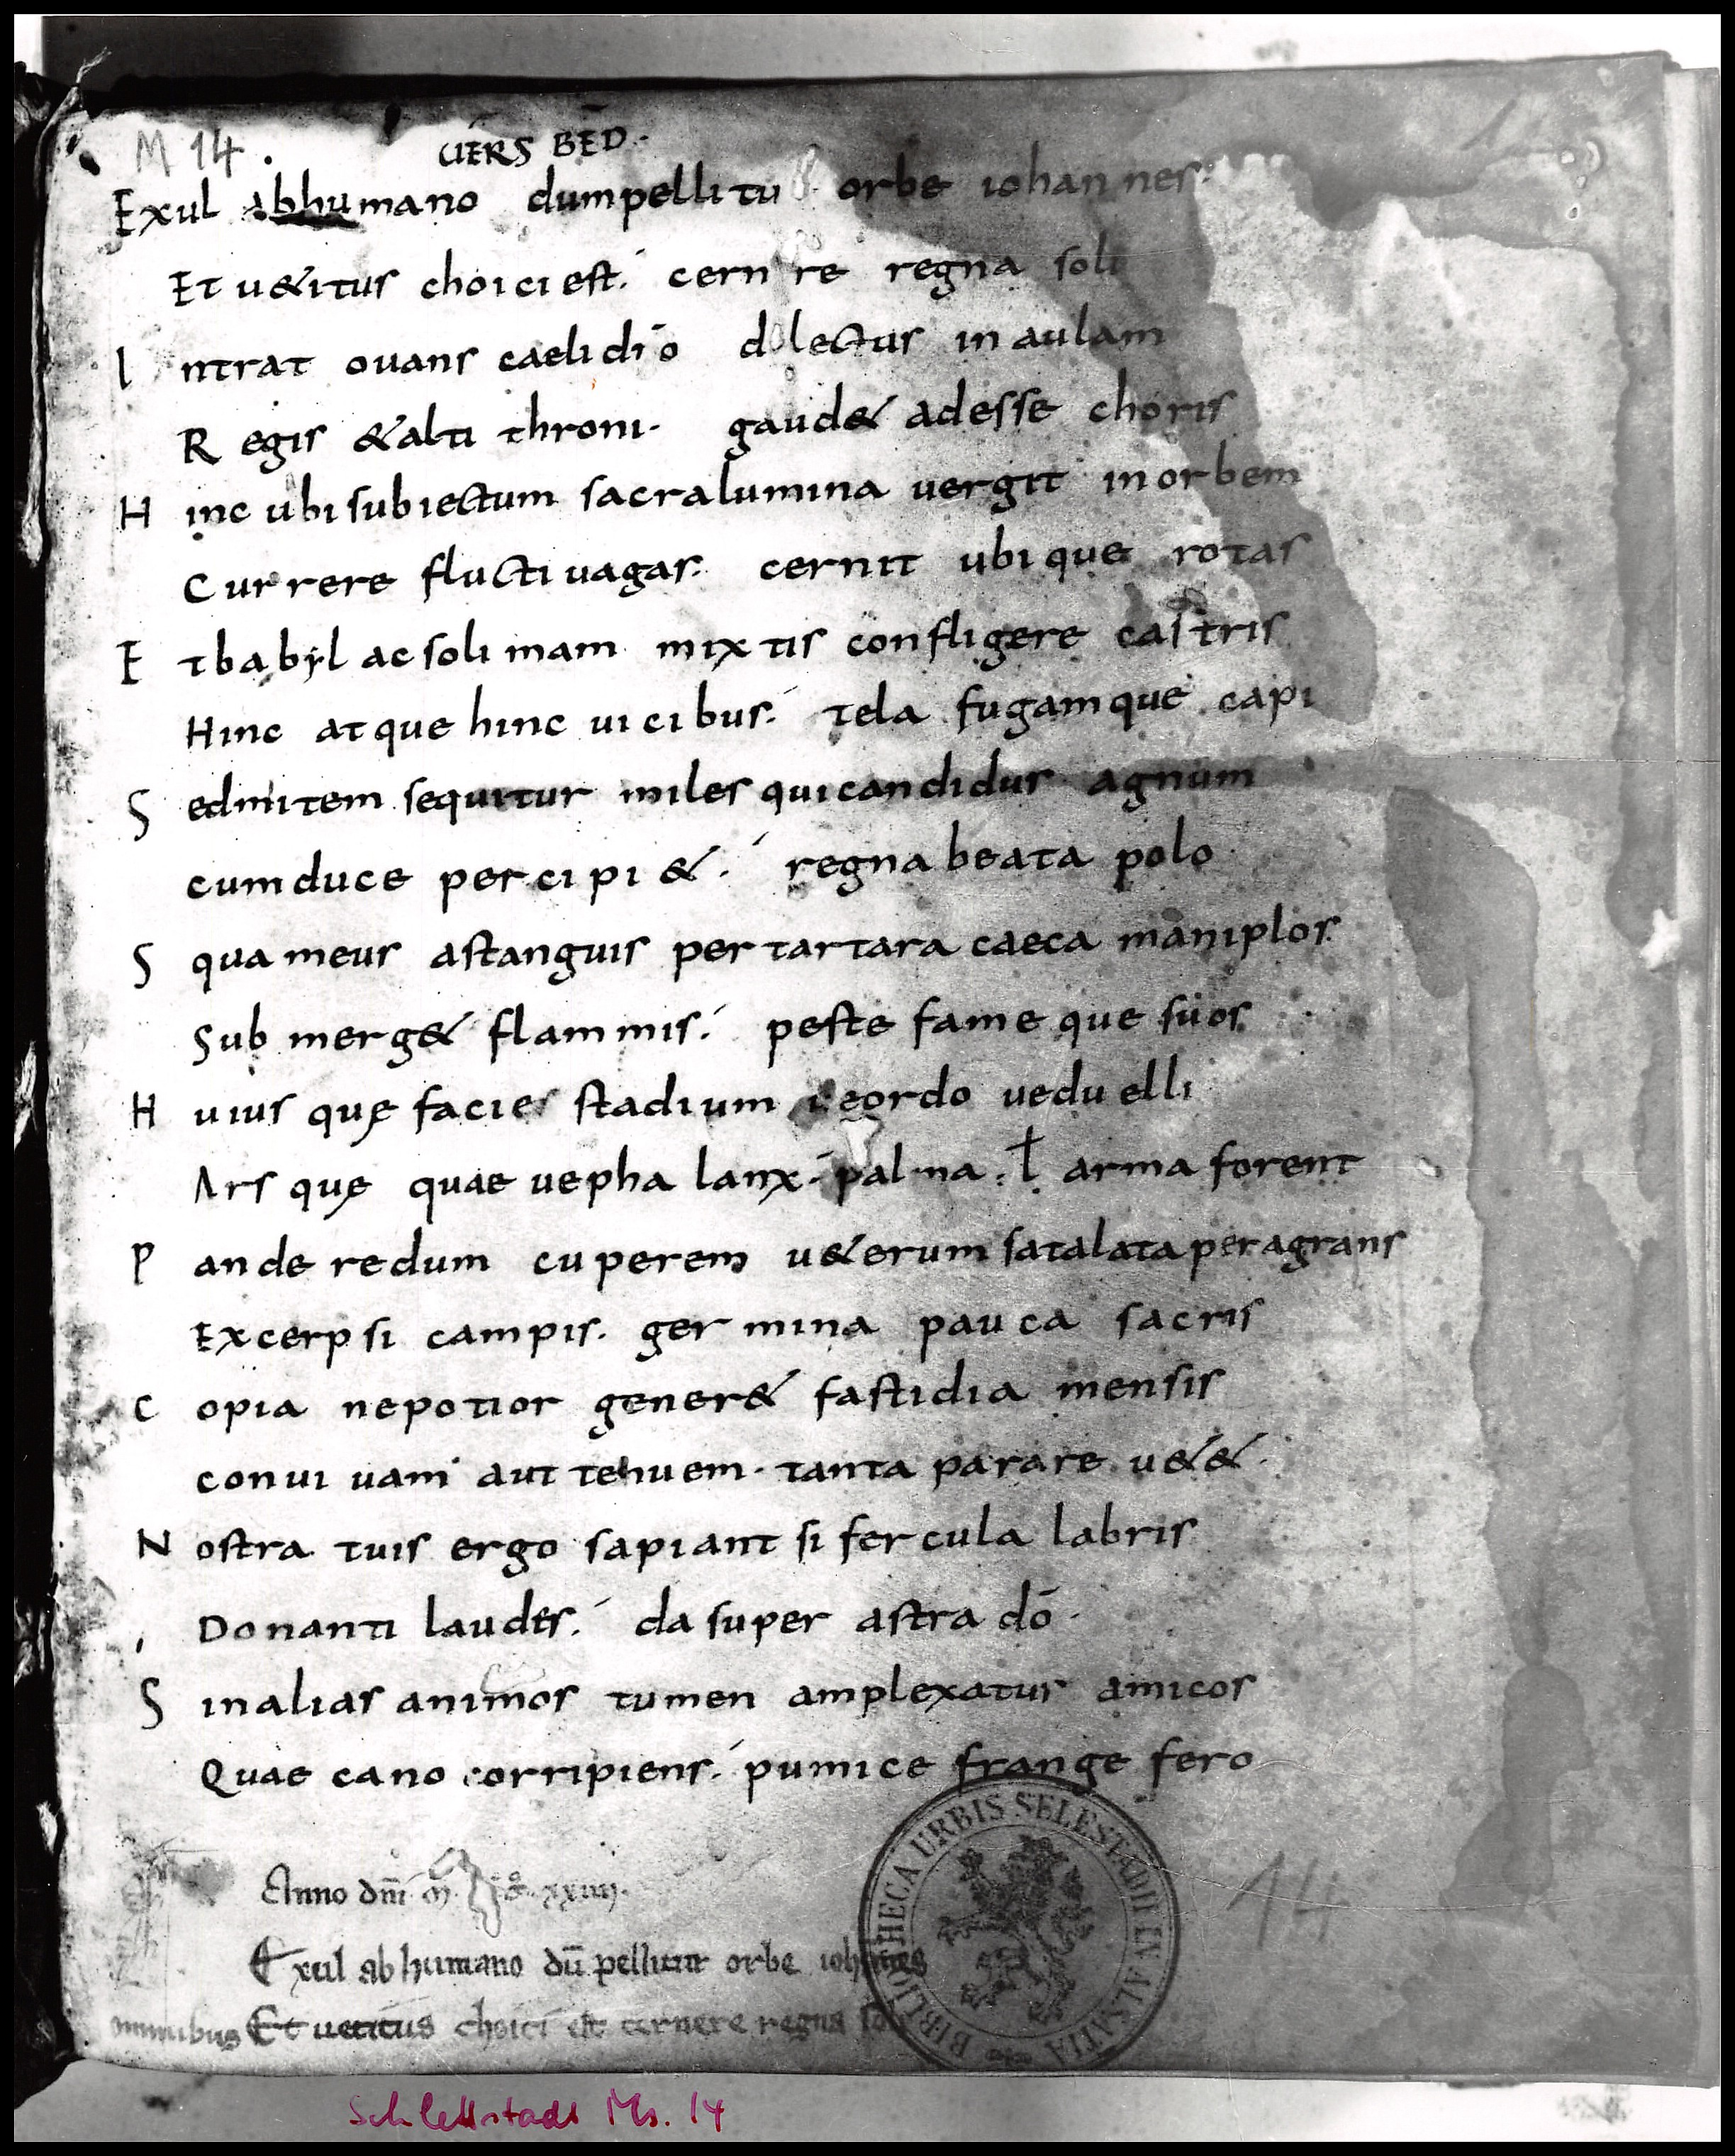 M 14
UERS BED.
Exul abhumano dumpellitur orbe iohannes.
Et u&itus choici est. cernere regna soli
Intrat ouans caeli dīo dilectus in aulam
Regis &alti throni. gaud& adesse choris
Hinc ubi subiectum sacralumina uergit inorbem
Currere fluctiuagas. cernit ubique rotas
Etbabyl acsolimam mixtis confligere castris
Hinc atque hinc uicibus. tela fugamque capi
Sedmitem sequitur miles quicandidus agnum
cumduce percipi&. regna beata polo
Squameus astanguis per tartara caeca maniplos.
Submerg& flammis. peste fameque suos.
Huius quę facies stadium ordo ueduelli
Ars quę quae uepha lanx. palma: ł arma forent
Pandere dum cuperem u&erum satalata peragrans
Excerpsi campis. germina pauca sacris
Copia nepotior gener& fastidia mensis
conuiuam aut tenuem. tanta parare u&&.
Nostra tuis ergo sapiant si fercula labris
Donanti laudes. da super astra dō.
Sinalias animos tumen amplexatur amicos
Quae cano corripiens. pumice frange fero
Anno dn̄i xxiiii.
Exul ab humano dū pellitur orbe iohannes
omnibus Et uetitus choici est cernere regna soli
BIBLIOTHECA URBIS SELESTADII IN ALSATIA
14
Schlettstadt Ms. 14